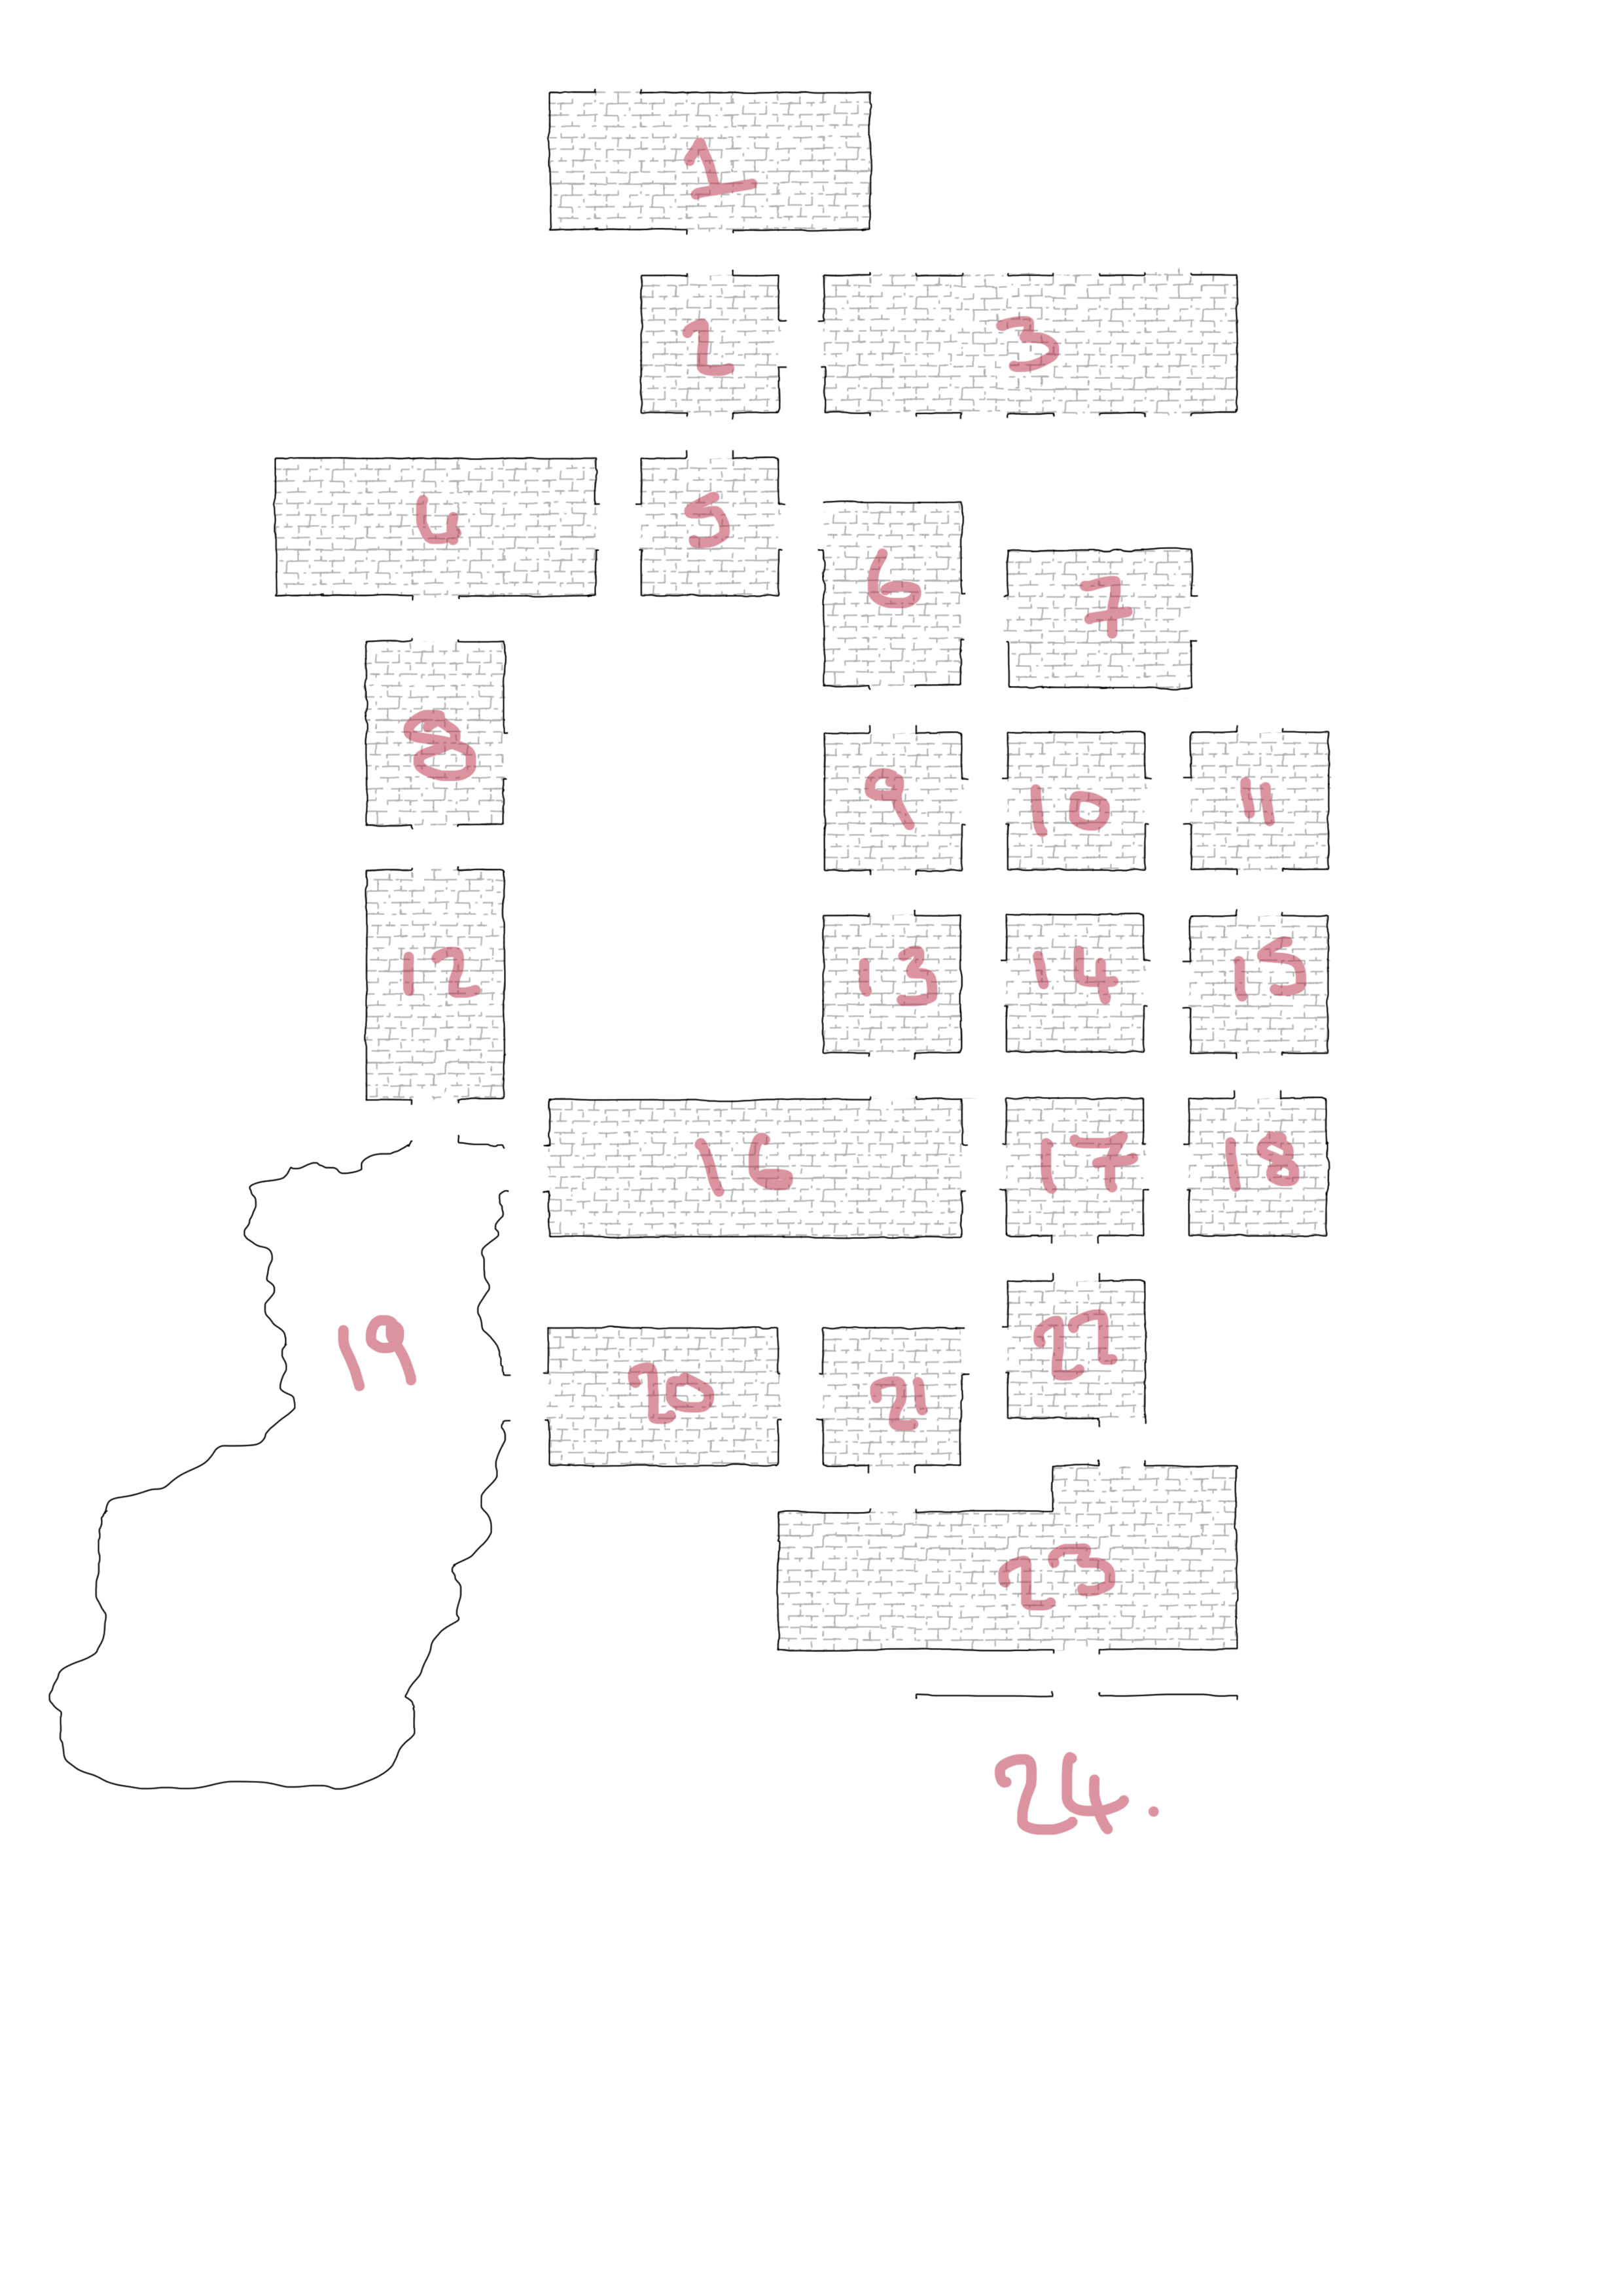 1
2
3
4
5
6
7
8
9
10
11
12
13
14
15
16
17
18
19
20
21
22
23
24.